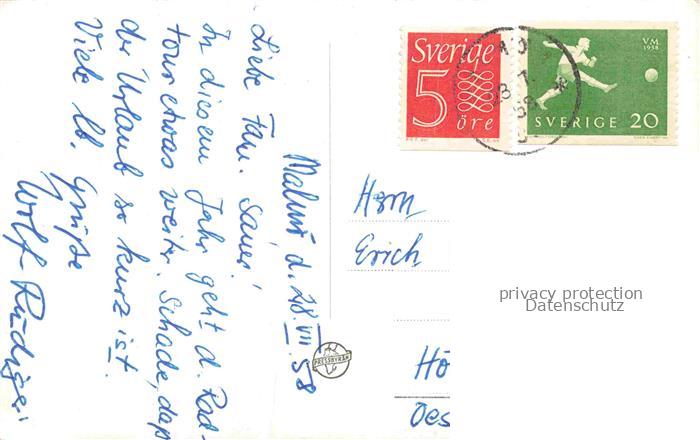 Malmö d. 28.VII.58
Liebe Fam. Sauer!
In diesem Jahr geht d. Rad-
tour etwas weiter. Schade, daß
der Urlaub so kurz ist.
Viele lb. Grüße
Wolf-Rüdiger
Sverige
5
öre
VM
1958
SVERIGE 20
Herrn
Erich
Hö
Oes
PRESSBYRÅN
privacy protection
Datenschutz